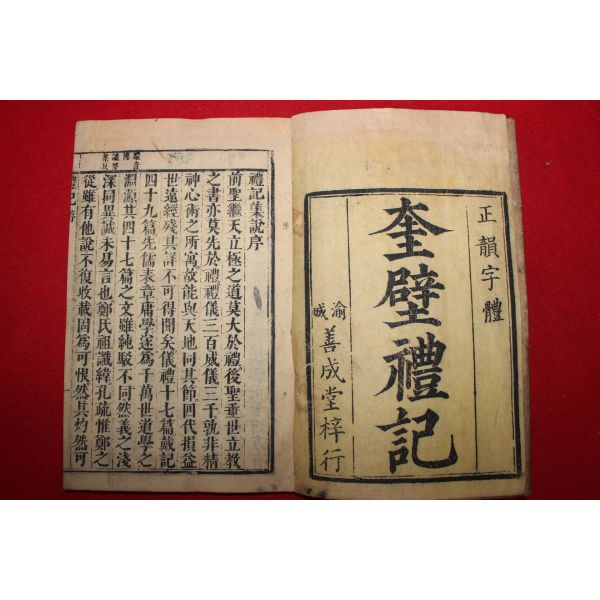 正韻字體
奎壁禮記
渝城善成堂梓行
禮記集說序
前聖繼天立極之道莫大於禮後聖垂世立教
之書亦莫先於禮禮儀三百威儀三千孰非精
神心術之所寓故能與天地同其節四代損益
世遠經殘其詳不可得聞矣儀禮十七篇戴記
四十九篇先儒表章庸學遂為千萬世道學之
淵源其四十七篇之文雖純駁不同然義之淺
深同異誠未易言也鄭氏祖讖緯孔疏惟鄭之
從雖有他說不復收載固為可恨然其灼然可
禮記序